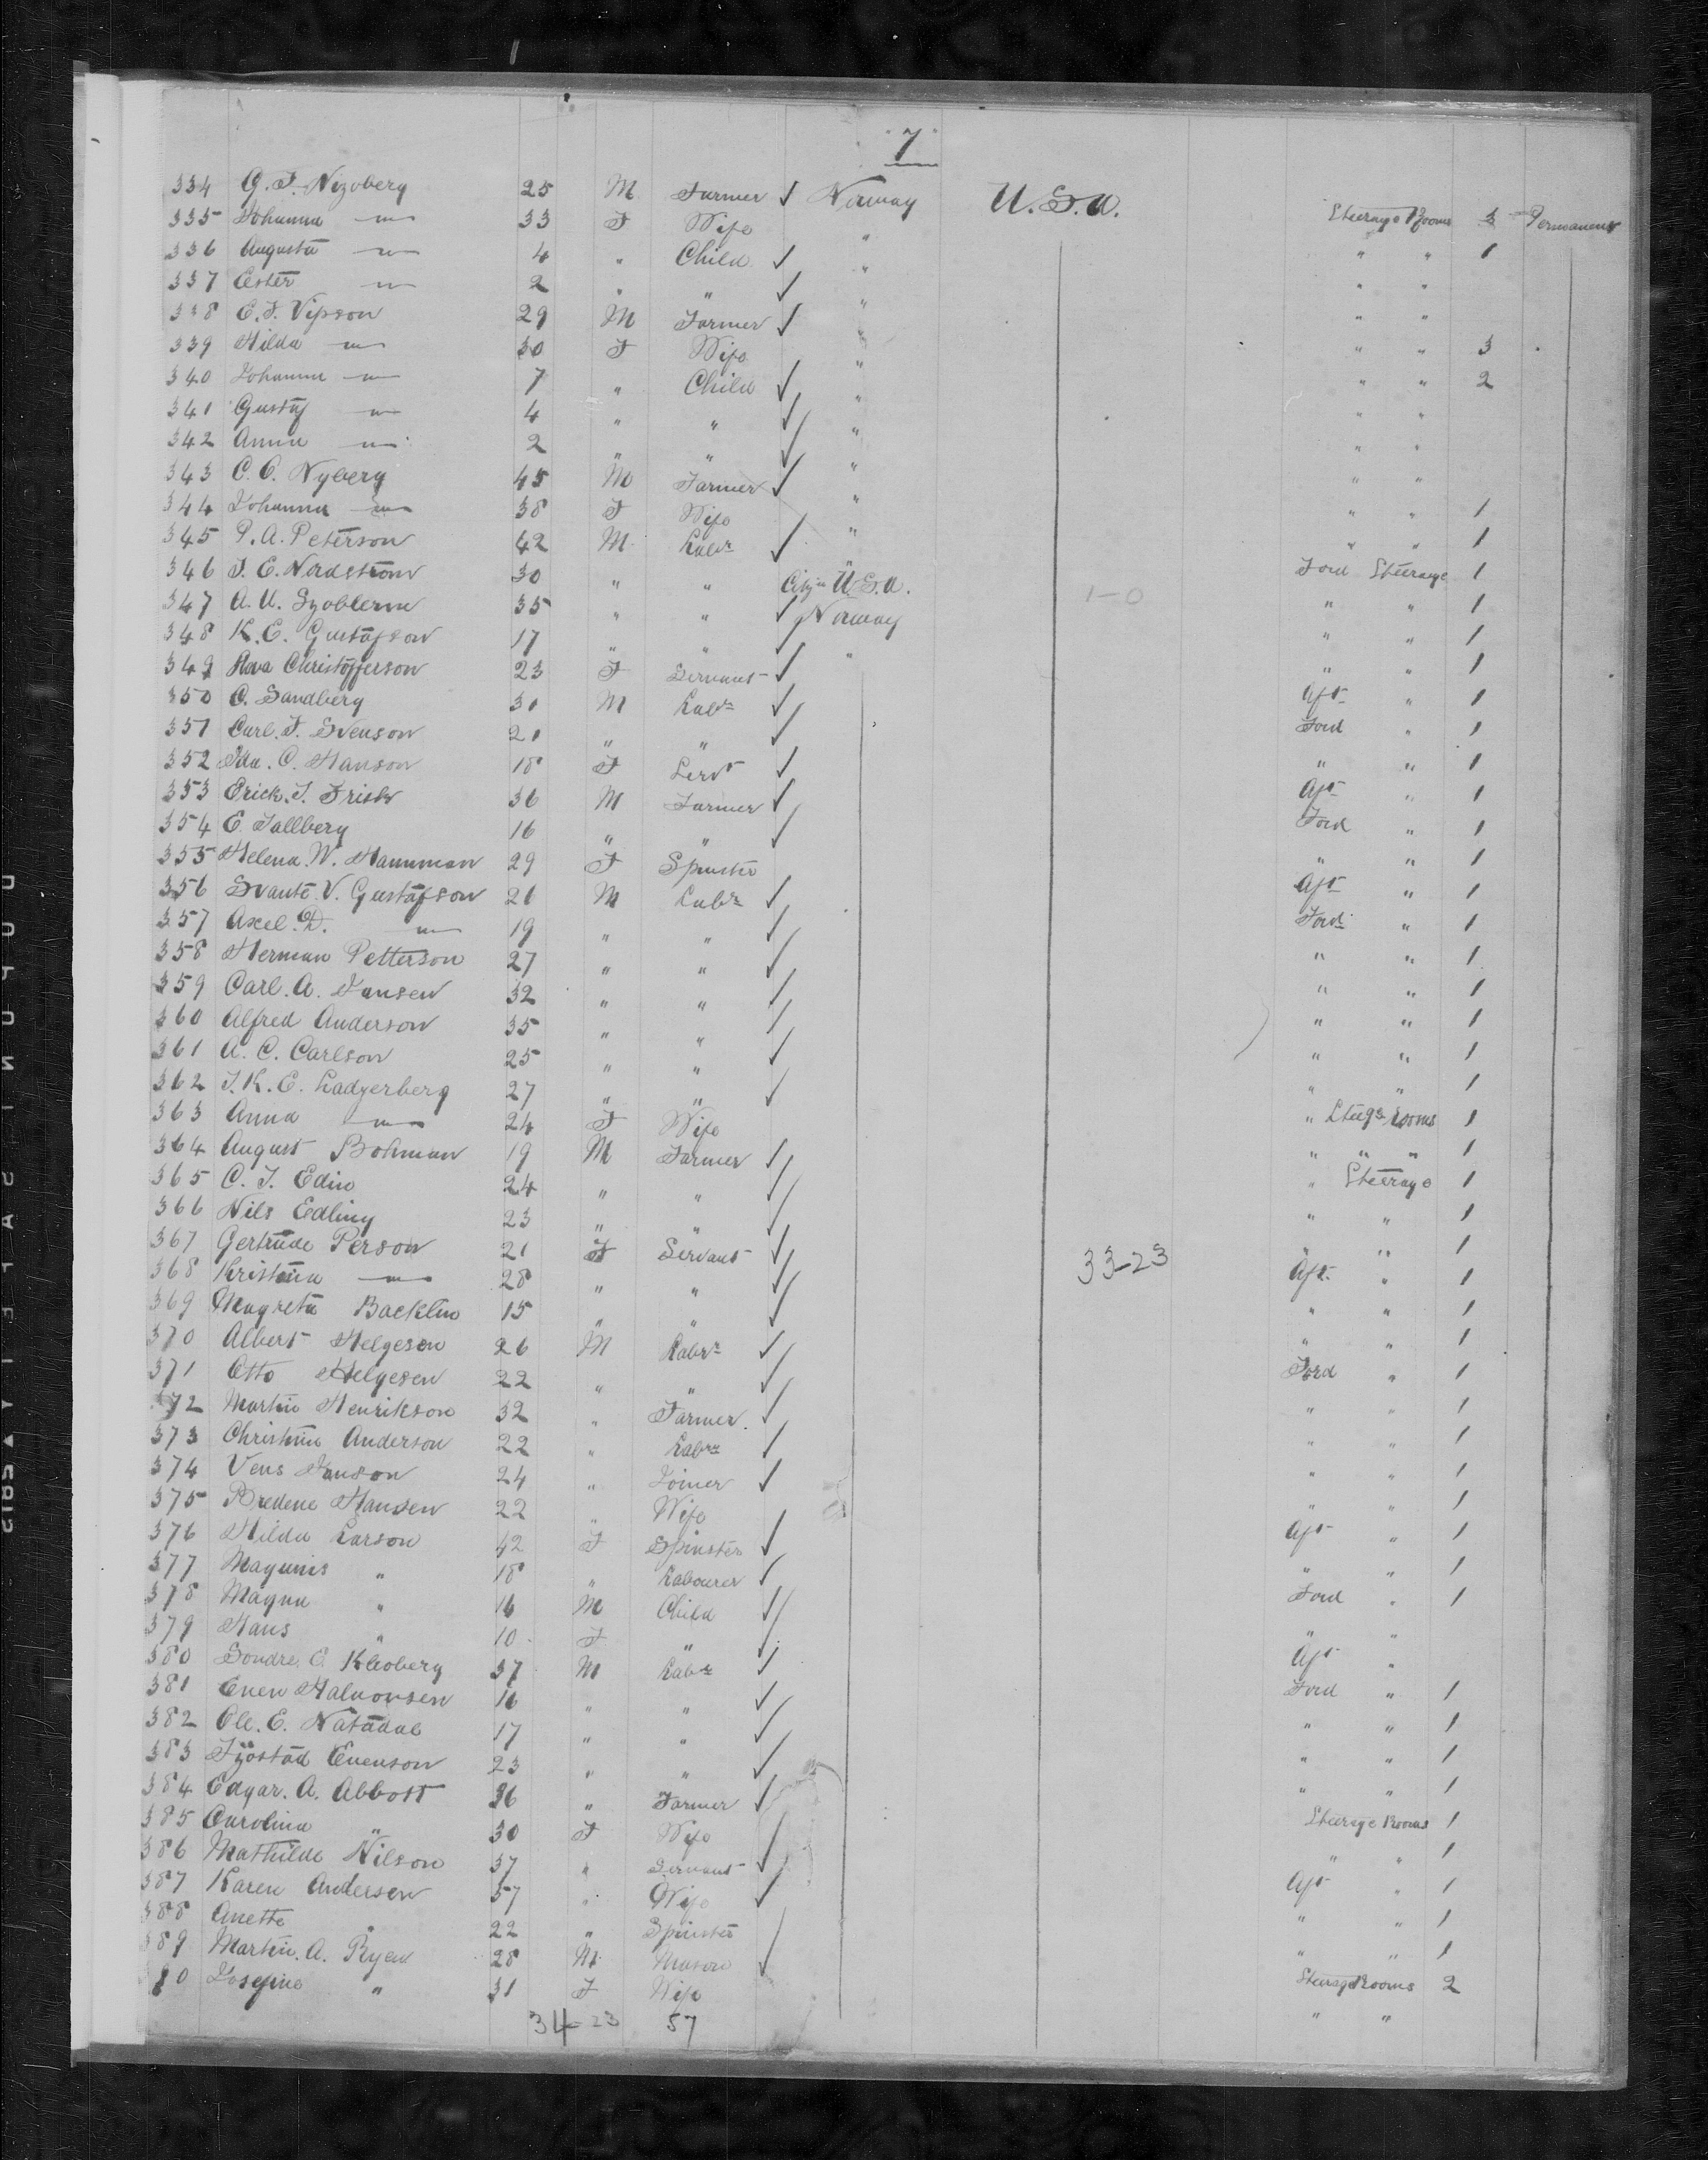 "7"
334 G. F. Nizoberg 25 M Farmer ✓ Norway U.S.A. Steerage Rooms 3 Permanent
335 Johanna —"— 33 F Wife " " " 1
336 Augusta —"— 4 " Child ✓ " " "
337 Ester —"— 2 " " ✓ " " "
338 E. F. Vipson 29 M Farmer ✓ " " " 3
339 Hilda —"— 30 F Wife " " " 2
340 Johanna —"— 7 " Child ✓ " " "
341 Gustaf —"— 4 " " ✓ " " "
342 Anna —"— 2 " " ✓ " " "
343 C. O. Nyberg 45 M Farmer ✓ " " " 1
344 Johanna —"— 38 F Wife " " " 1
345 P. A. Peterson 42 M Labr ✓ " Ford Steerage 1
346 J. E. Nordstrom 30 " " Citzn U.S.A. 1-0 " " 1
347 A. U. 35 " " ✓ Norway " " 1
348 K. E. Gustafson 17 " " ✓ " " " 1
349 Christofferson 23 F Servant ✓ Aft " 1
350 C. Sandberg 30 M Labr ✓ Ford " 1
351 Carl. F. Svenson 21 " " ✓ " " 1
352 Ida. C. Hanson 18 F Servt ✓ Aft " 1
353 Erick. J. Frisk 36 M Farmer ✓ Ford " 1
354 E. Tallberg 16 " " ✓ " " 1
355 Helena. W. Hamman 29 F Spinstr Aft " 1
356 Svante. V. Gustafson 21 M Labr ✓ Ford " 1
357 Axel. D. —"— 19 " " ✓ " " 1
358 Herman Petterson 27 " " ✓ " " 1
359 Carl. A. Jansen 32 " " ✓ " " 1
360 Alfred Anderson 35 " " ✓ " " 1
361 A. C. Carlson 25 " " ✓ " " 1
362 J. K. E. Ladgerberg 27 " " ✓ " Steege Rooms 1
363 Anna —"— 24 F Wife " " " 1
364 August Bohman 19 M Farmer ✓ " Steerage 1
365 C. J. Edin 24 " " ✓ " " 1
366 Nils Edling 23 " " ✓ " " 1
367 Gertrude Person 21 F Servant ✓ 33-23 Aft " 1
368 Kristina —"— 28 " " ✓ " " 1
369 Magreta Backlin 15 " " ✓ " " 1
370 Albert Helgeson 26 M Labr ✓ Ford " 1
371 Otto Helgesen 22 " " ✓ " " 1
372 Martin Henrikson 32 " Farmer ✓ " " 1
373 Christine Anderson 22 " Labr ✓ " " 1
374 Vens Janson 24 " Joiner ✓ " " 1
375 Bredene Hansen 22 " Wife Aft " 1
376 Hilda Larson 42 F Spinster ✓ " " 1
377 Magunis " 18 " Labourer ✓ Ford " 1
378 Magna " 16 M Child ✓ " "
379 Hans " 10 F " ✓ Aft "
380 Sondre. E. Kleoberg 37 M Labr ✓ Ford " 1
381 Even Halvorsen 16 " " ✓ " " 1
382 Ole. E. Natadal 17 " " ✓ " " 1
383 Evenson 23 " " ✓ " " 1
384 Edgar. A. Abbott 36 " Farmer ✓ Steerage Rooms 1
385 Carolina " 30 F Wife " " 1
386 Mathilde Nilson 37 " Servant ✓ Aft " 1
387 Karen Andersen 57 " Wife ✓ " " 1
388 Anette " 22 " Spinster " " 1
389 Martin. A. Ryen 28 M Mason ✓ Steerge Rooms 2
390 Josefine " 31 F Wife " "
34-23 57